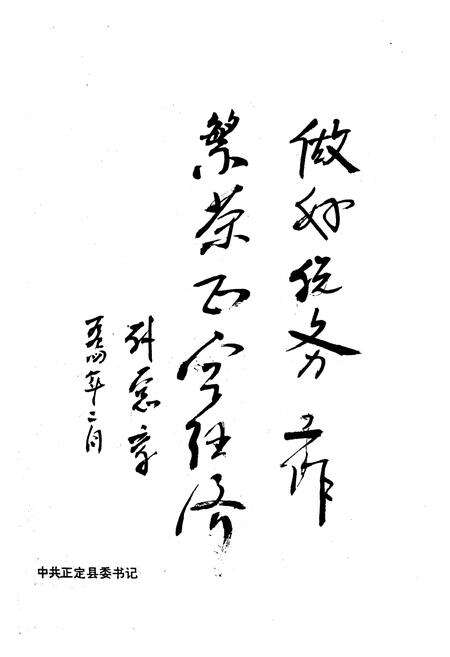 做好税务工作
繁荣正定经济
九四年二月
中共正定县委书记